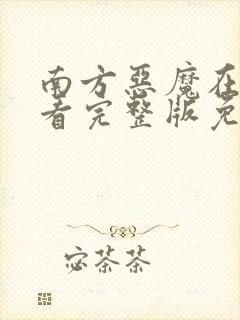 南方惡魔在
看完整版免
宓茶茶